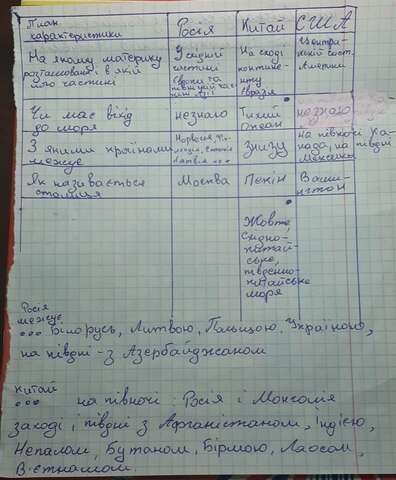 План характеристики | Росія | Китай | США
На якому материку розташований і в якій його частині | У східній частині Європи та північній частині Азії | На сході континенту Євразія | Центральній част. Америки
Чи має вихід до моря | незнаю | Тихий Океан | незнаю
З якими країнами межує | Норвегія, Фінляндія, Естонія Латвія ••• | знизу | на півночі Канада, на півдні Мексика
Як називається столиця | Москва | Пекін | Вашингтон
Жовте,
Східно-
китай-
ське,
південно-
китайське
моря
Росія
межує
••• Білорусь, Литвою, Польщою, Україною,
на півдні - з Азербайджаном
Китай
••• на півночі: Росія і Монголія
заході і півдні з Афганістаном, Індією,
Непалом, Бутаном, Бірмою, Лаосом,
В'єтнамом.